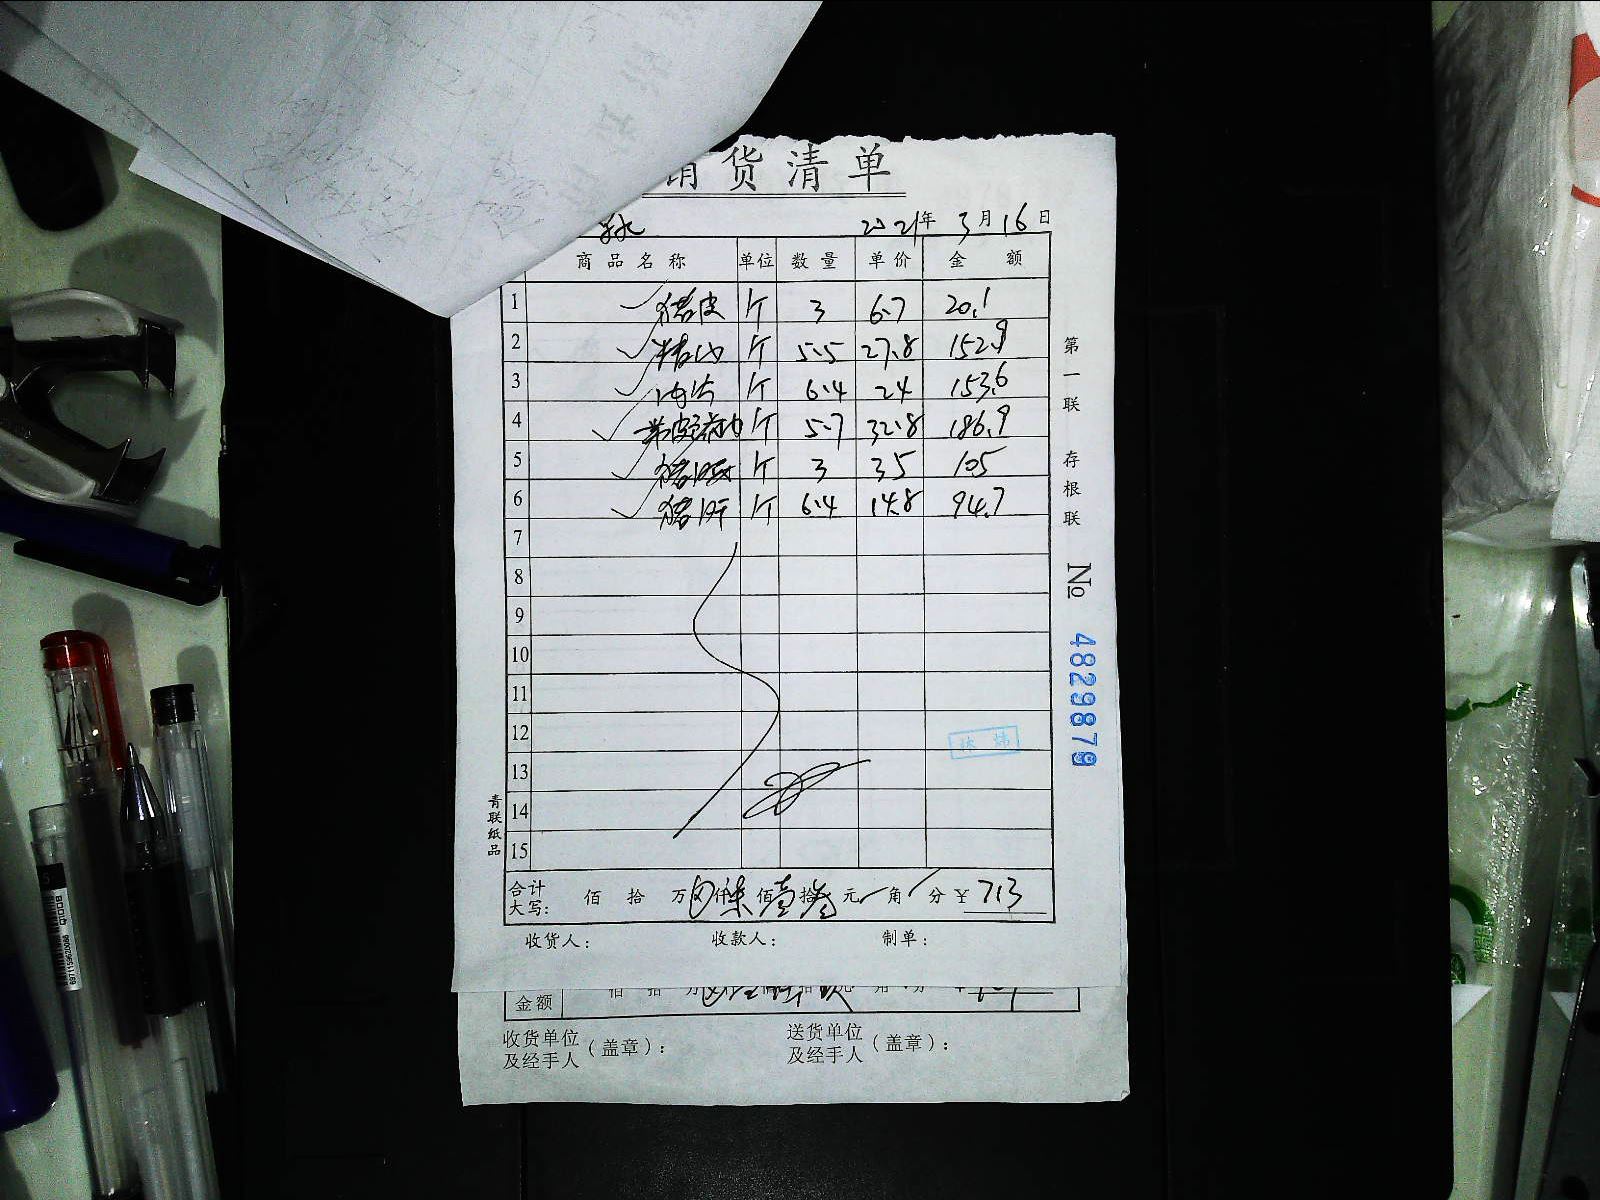 销货清单
2021年 3月16日
商品名称 单位 数量 单价 金额
1 猪皮 斤 3 6.7 20.1
2 斤 5.5 27.8 152.9
3 斤 6.4 24 153.6
4 斤 5.7 32.8 186.9
5 斤 3 35 105
6 猪肝 斤 6.4 14.8 94.7
7
8
9
10
11
12
13
14
15
合计大写: 佰 拾 万 仟柒佰壹拾叁元 角 分 ¥ 713
收货人: 收款人: 制单:
第一联 存根联
No 4829879
青联纸品
金额 佰 拾 万
收货单位及经手人(盖章): 送货单位及经手人(盖章):